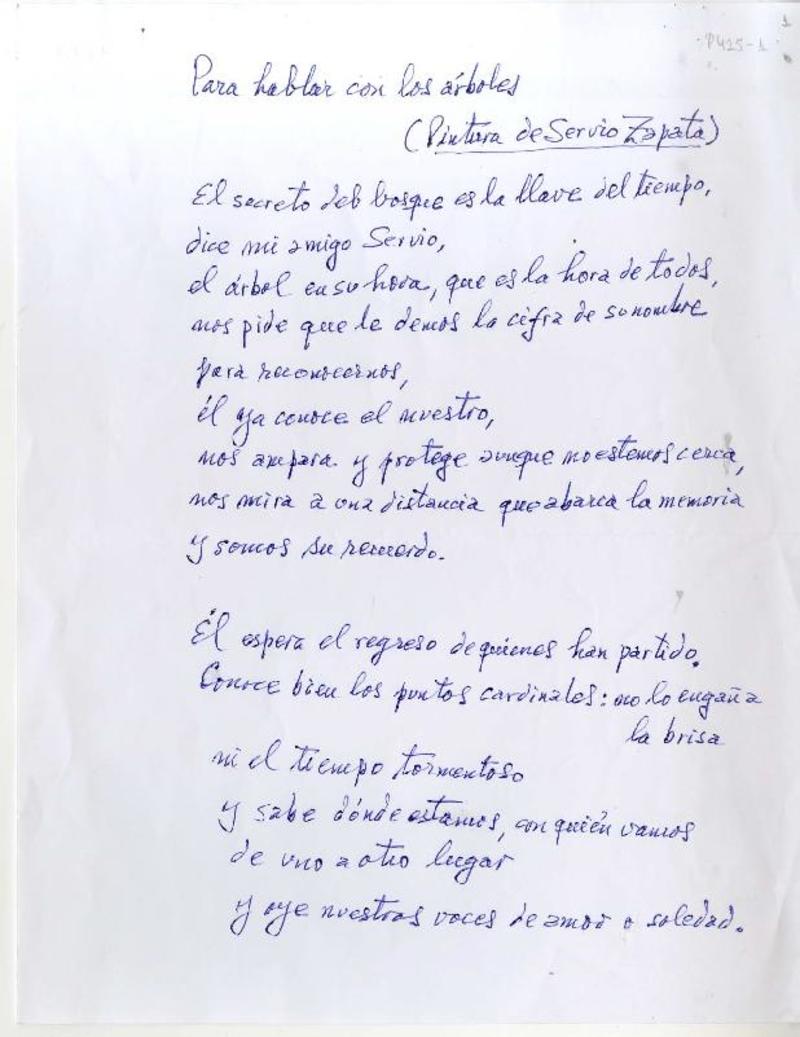 1
P425-1
Para hablar con los árboles
(Pintura de Servio Zapata)
El secreto del bosque es la llave del tiempo,
dice mi amigo Servio,
el árbol en su hora, que es la hora de todos,
nos pide que le demos la cifra de su nombre
para reconocernos,
él ya conoce el nuestro,
nos ampara y protege aunque no estemos cerca,
nos mira a una distancia que abarca la memoria
y somos su recuerdo.
Él espera el regreso de quienes han partido.
Conoce bien los puntos cardinales: no lo engaña
la brisa
ni el tiempo tormentoso
y sabe dónde estamos, con quién vamos
de uno a otro lugar
y oye nuestras voces de amor o soledad.